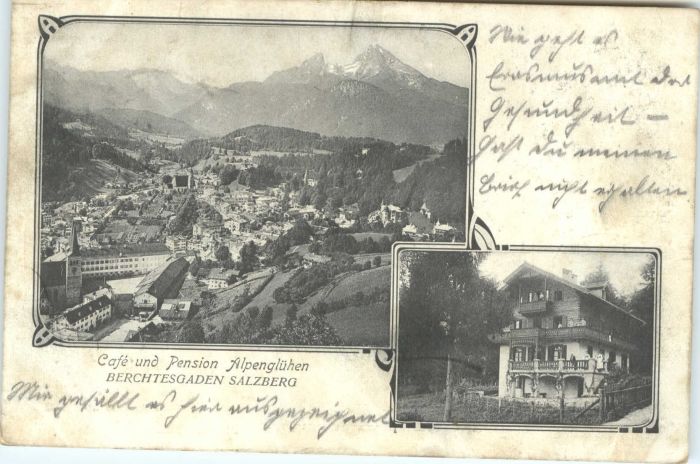 Wie geht es
Erasmus mit der
Gesundheit —
Hast Du meinen
Brief nicht erhalten
Café und Pension Alpenglühen
BERCHTESGADEN SALZBERG
Mir gefällt es hier ausgezeichnet